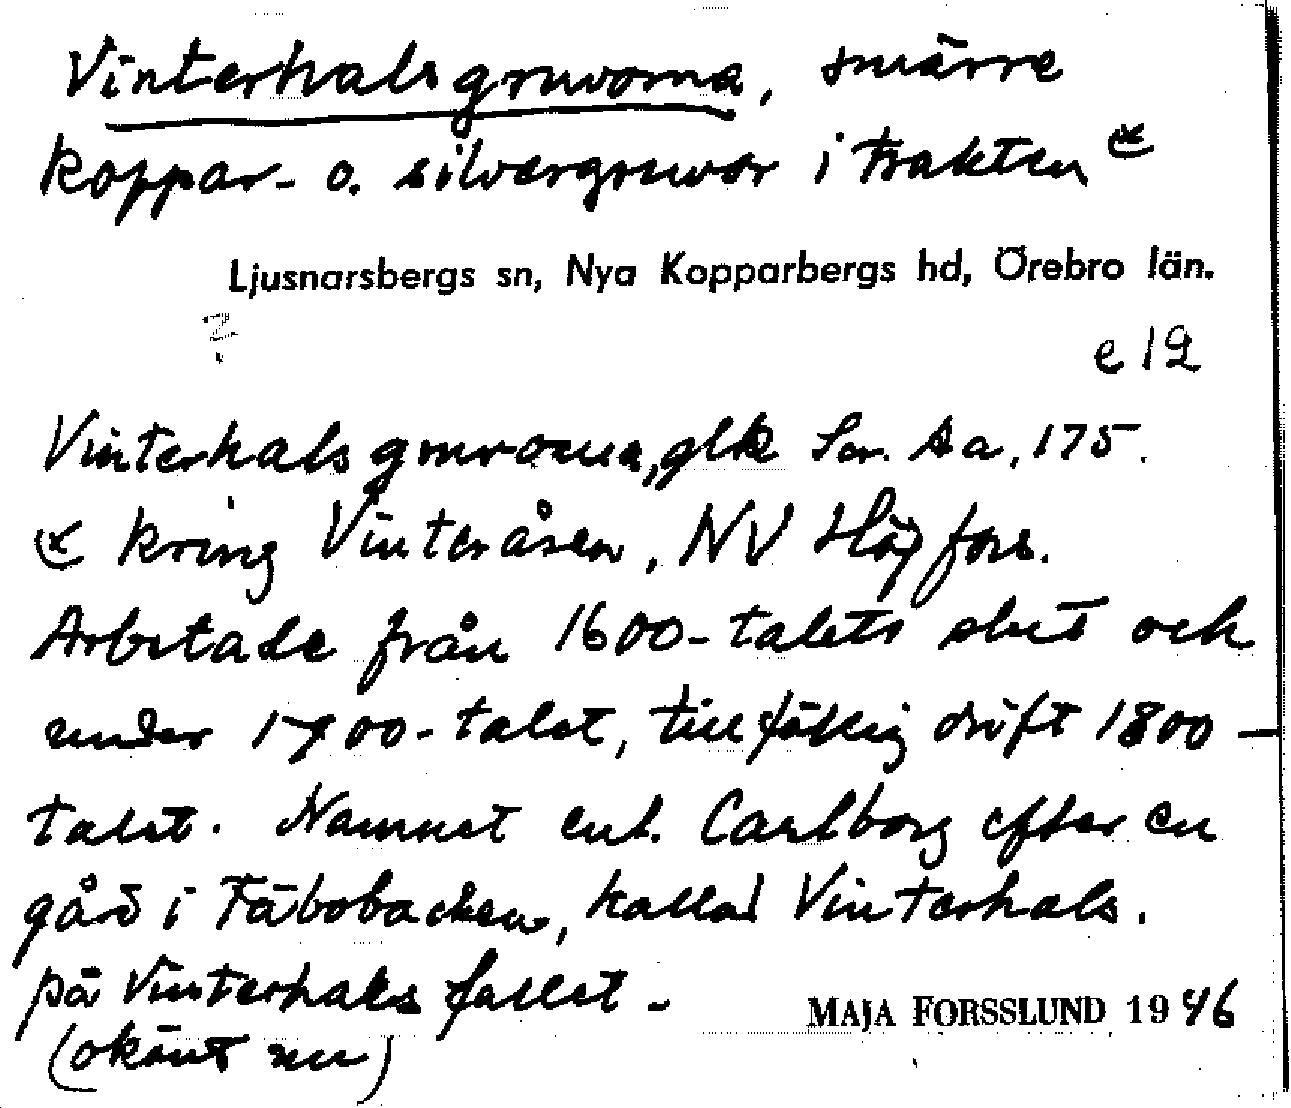 Vinterhalsgruvorna, smärre
koppar- o. silvergruvor i trakten x
Ljusnarsbergs sn, Nya Kopparbergs hd, Örebro län.
?
e 12
Vinterhalsgruvorna, glk Ser. Aa, 175.
x kring Vinteråsen, NV Högfors.
Arbetade från 1600-talets slut och
under 1700-talet, tillfällig drift 1800-
talet. Namnet enl. Carlborg efter en
gård i Fäbobacken, kallad Vinterhals.
på Vinterhalsfallet -
(okänt nu)
MAJA FORSSLUND 1946